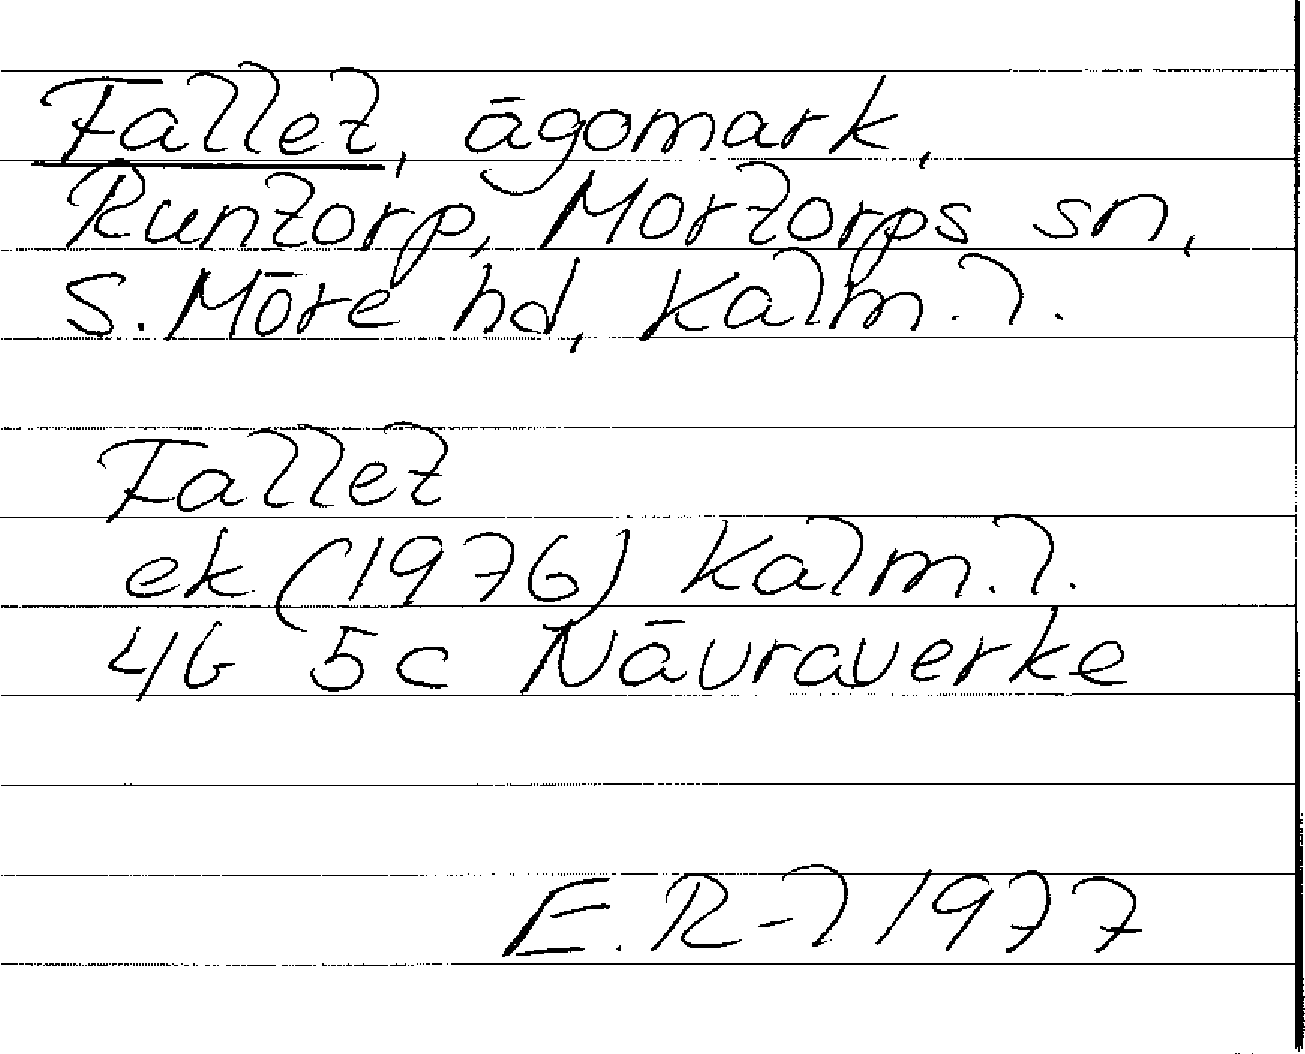 Fallet, ägomark,
Runtorp, Mortorps sn,
S. Möre hd, Kalm. l.
Fallet
ek (1976) Kalm. l.
4G 5c Nävraverke
E. R-l 1977